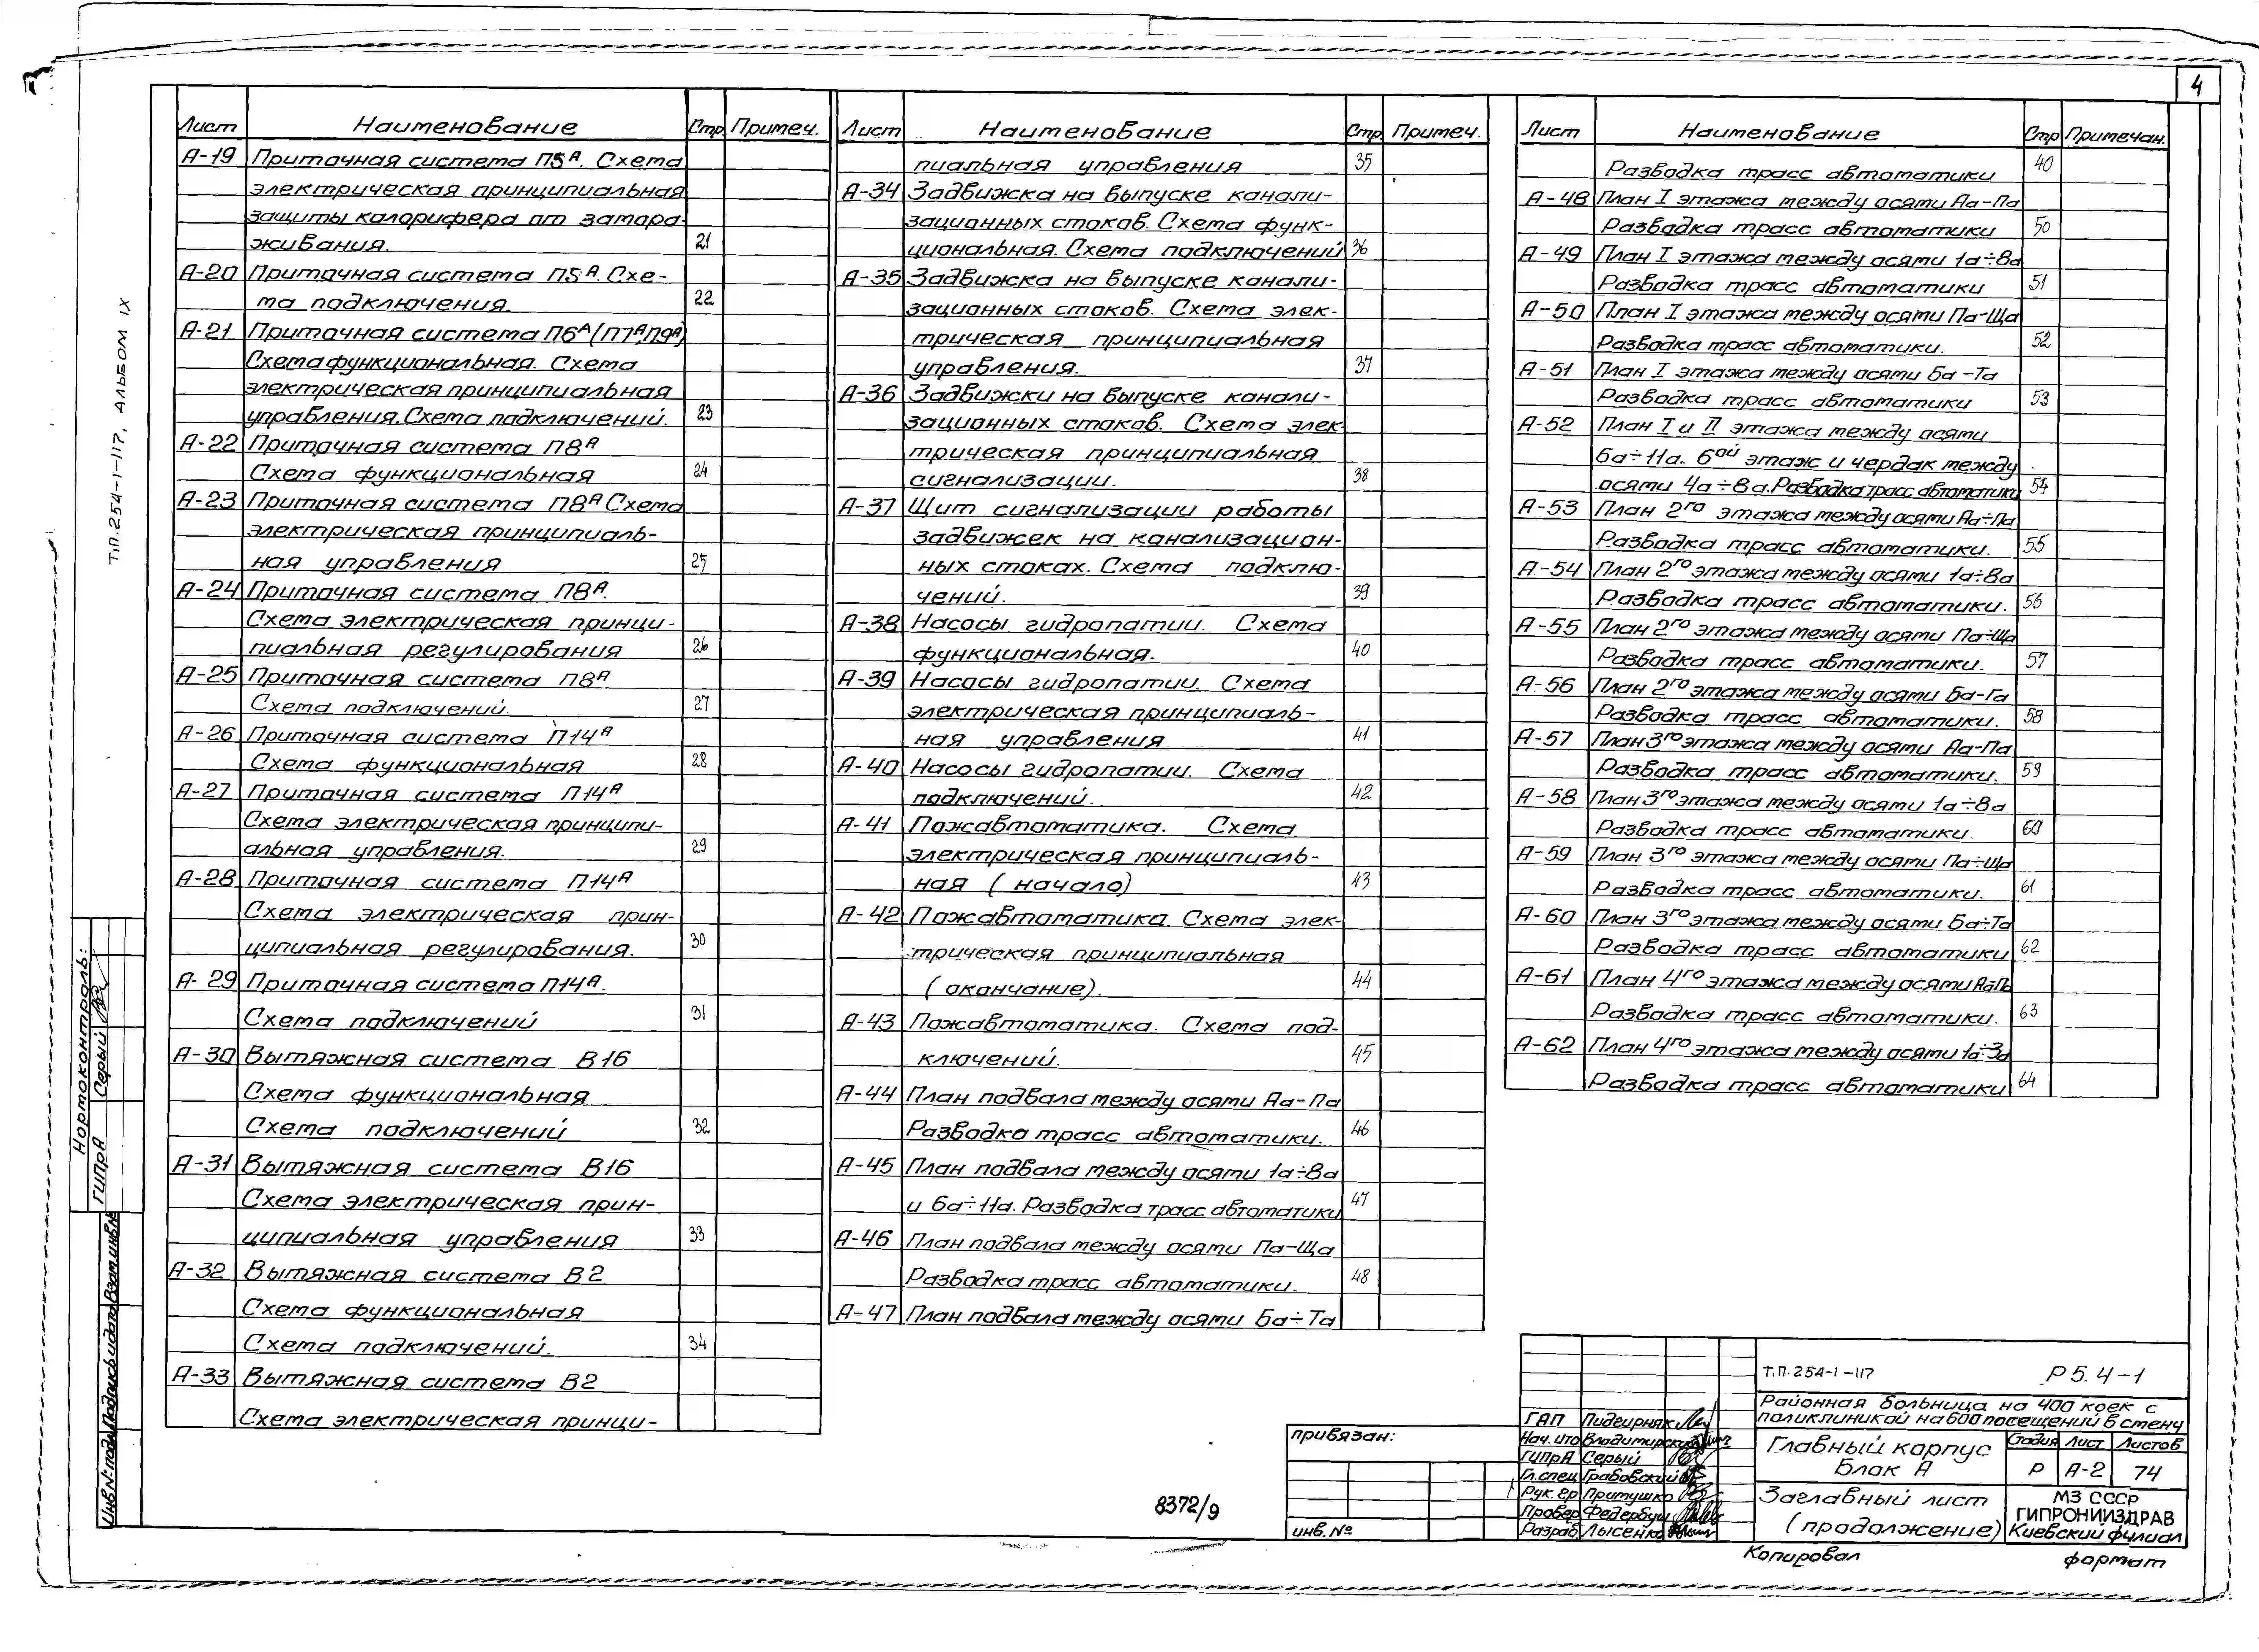 4
Лист Наименование Стр Примеч.
А-19 Приточная система П5А. Схема
электрическая принципиальная
защиты калорифера от замора-
живания. 21
А-20 Приточная система П5А. Схе-
ма подключения. 22
А-21 Приточная система П6А (П7А, П9А)
Схема функциональная. Схема
электрическая принципиальная
управления. Схема подключений. 23
А-22 Приточная система П8А
Схема функциональная 24
А-23 Приточная система П8А Схема
электрическая принципиаль-
ная управления 25
А-24 Приточная система П8А.
Схема электрическая принци-
пиальная регулирования 26
А-25 Приточная система П8А
Схема подключений. 27
А-26 Приточная система П14А
Схема функциональная 28
А-27 Приточная система П14А
Схема электрическая принципи-
альная управления. 29
А-28 Приточная система П14А
Схема электрическая прин-
ципиальная регулирования. 30
А-29 Приточная система П14А.
Схема подключений 31
А-30 Вытяжная система В16
Схема функциональная
Схема подключений 32
А-31 Вытяжная система В16
Схема электрическая прин-
ципиальная управления 33
А-32 Вытяжная система В2
Схема функциональная
Схема подключений. 34
А-33 Вытяжная система В2
Схема электрическая принци-
Лист Наименование Стр Примеч.
пиальная управления 35
А-34 Задвижка на выпуске канали-
зационных стоков. Схема функ-
циональная. Схема подключений 36
А-35 Задвижка на выпуске канали-
зационных стоков. Схема элек-
трическая принципиальная
управления. 37
А-36 Задвижки на выпуске канали-
зационных стоков. Схема элек-
трическая принципиальная
сигнализации. 38
А-37 Щит сигнализации работы
задвижек на канализацион-
ных стоках. Схема подклю-
чений. 39
А-38 Насосы гидропатии. Схема
функциональная. 40
А-39 Насосы гидропатии. Схема
электрическая принципиаль-
ная управления 41
А-40 Насосы гидропатии. Схема
подключений. 42
А-41 Пожавтоматика. Схема
электрическая принципиаль-
ная (начало) 43
А-42 Пожавтоматика. Схема элек-
трическая принципиальная
(окончание). 44
А-43 Пожавтоматика. Схема под-
ключений. 45
А-44 План подвала между осями Аа-Па
Разводка трасс автоматики. 46
А-45 План подвала между осями 1а÷8а
и 6а÷11а. Разводка трасс автоматики 47
А-46 План подвала между осями Па-Ща
Разводка трасс автоматики. 48
А-47 План подвала между осями Ба÷Та
Лист Наименование Стр Примечан.
Разводка трасс автоматики 40
А-48 План I этажа между осями Аа-Па
Разводка трасс автоматики 50
А-49 План I этажа между осями 1а÷8а
Разводка трасс автоматики 51
А-50 План I этажа между осями Па-Ща
Разводка трасс автоматики. 52
А-51 План I этажа между осями Ба-Та
Разводка трасс автоматики 53
А-52 План I и II этажа между осями
6а÷11а. 6ой этаж и чердак между
осями 4а÷8а. Разводка трасс автоматики 54
А-53 План 2го этажа между осями Аа÷Па
Разводка трасс автоматики. 55
А-54 План 2го этажа между осями 1а÷8а
Разводка трасс автоматики. 56
А-55 План 2го этажа между осями Па÷Ща
Разводка трасс автоматики. 57
А-56 План 2го этажа между осями Ба-Га
Разводка трасс автоматики. 58
А-57 План 3го этажа между осями Аа-Па
Разводка трасс автоматики. 59
А-58 План 3го этажа между осями 1а÷8а
Разводка трасс автоматики. 60
А-59 План 3го этажа между осями Па÷Ща
Разводка трасс автоматики. 61
А-60 План 3го этажа между осями Ба÷Та
Разводка трасс автоматики 62
А-61 План 4го этажа между осями Аа-Па
Разводка трасс автоматики. 63
А-62 План 4го этажа между осями 1а÷3а
Разводка трасс автоматики 64
Т.П. 254-1-117, АЛЬБОМ IX
Нормоконтроль:
ГИПрА Серый
Инв.№ подл. Подпись и дата Взам.инв.№
8372/9
привязан:
инв. №
ГАП
Нач. ито Владимирский
ГИПрА Серый
Гл.спец Грабовский
Рук. гр Притушко
Провер Федербуш
Разраб Лысенко
Т.П. 254-1-117 Р 5.4-1
Районная больница на 400 коек с
поликлиникой на 600 посещений в смену
Главный корпус
Блок А
Стадия Лист Листов
Р А-2 74
Заглавный лист
(продолжение)
МЗ СССР
ГИПРОНИИЗДРАВ
Киевский филиал
Копировал формат